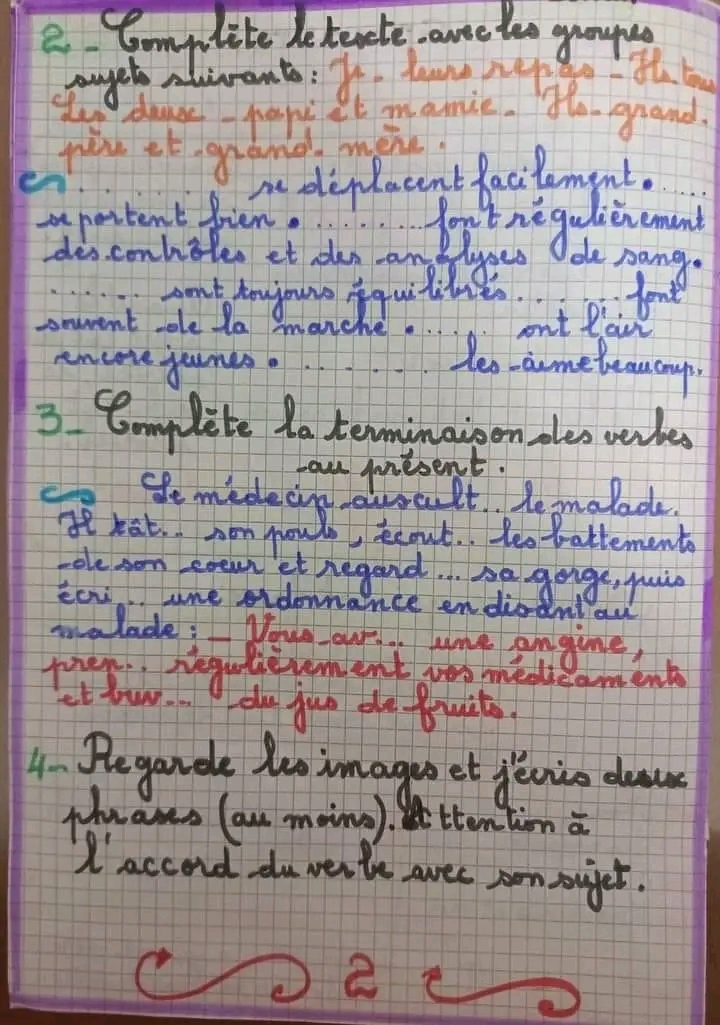 2 - Complète le texte avec les groupes
sujets suivants : Je - leurs repas - Ils - tous
Les deux - papi et mamie - Ils - grand-
père et grand-mère.
....... se déplacent facilement. .....
se portent bien . ........ font régulièrement
des contrôles et des analyses de sang.
....... sont toujours équilibrés. ...... font
souvent de la marche . ..... ont l'air
encore jeunes . ....... les aime beaucoup.
3 - Complète la terminaison des verbes
au présent .
Le médecin auscult.. le malade.
Il tât... son pouls, écout.. les battements
de son coeur et regard... sa gorge, puis
écri... une ordonnance en disant au
malade : - Vous av... une angine,
pren.. régulièrement vos médicaments
et buv... du jus de fruits.
4 - Regarde les images et j'écris deux
phrases (au moins). Attention à
l'accord du verbe avec son sujet.
2